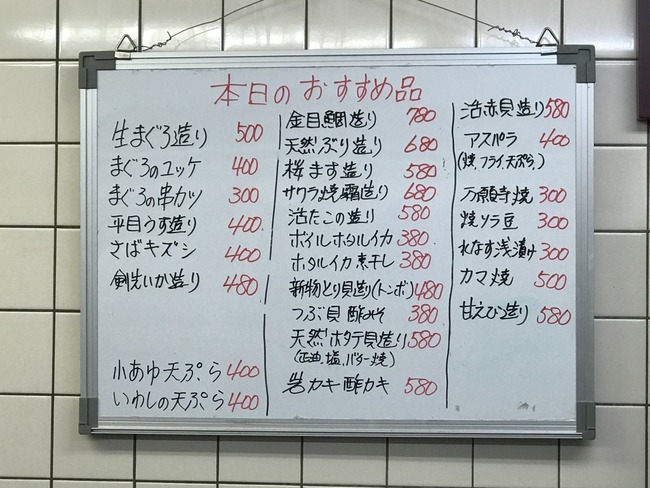 本日のおすすめ品
生まぐろ造り 500
まぐろのユッケ 400
まぐろの串カツ 300
平目うす造り 400
さばキズシ 400
剣先いか造り 480
小あゆ天ぷら 400
いわしの天ぷら 400
金目鯛造り 780
天然ぶり造り 680
桜ます造り 580
サワラ焼霜造り 680
活たこの造り 580
ボイルホタルイカ 380
ホタルイカ素干し 380
新物とり貝造り(トンボ) 480
つぶ貝酢みそ 380
天然ホタテ貝造り 580
(正油、塩、バター焼)
岩カキ酢カキ 580
活赤貝造り 580
アスパラ 400
(焼、フライ、天ぷら、)
万願寺焼 300
焼ソラ豆 300
水なす浅漬け 300
カマ焼 500
甘えび造り 580